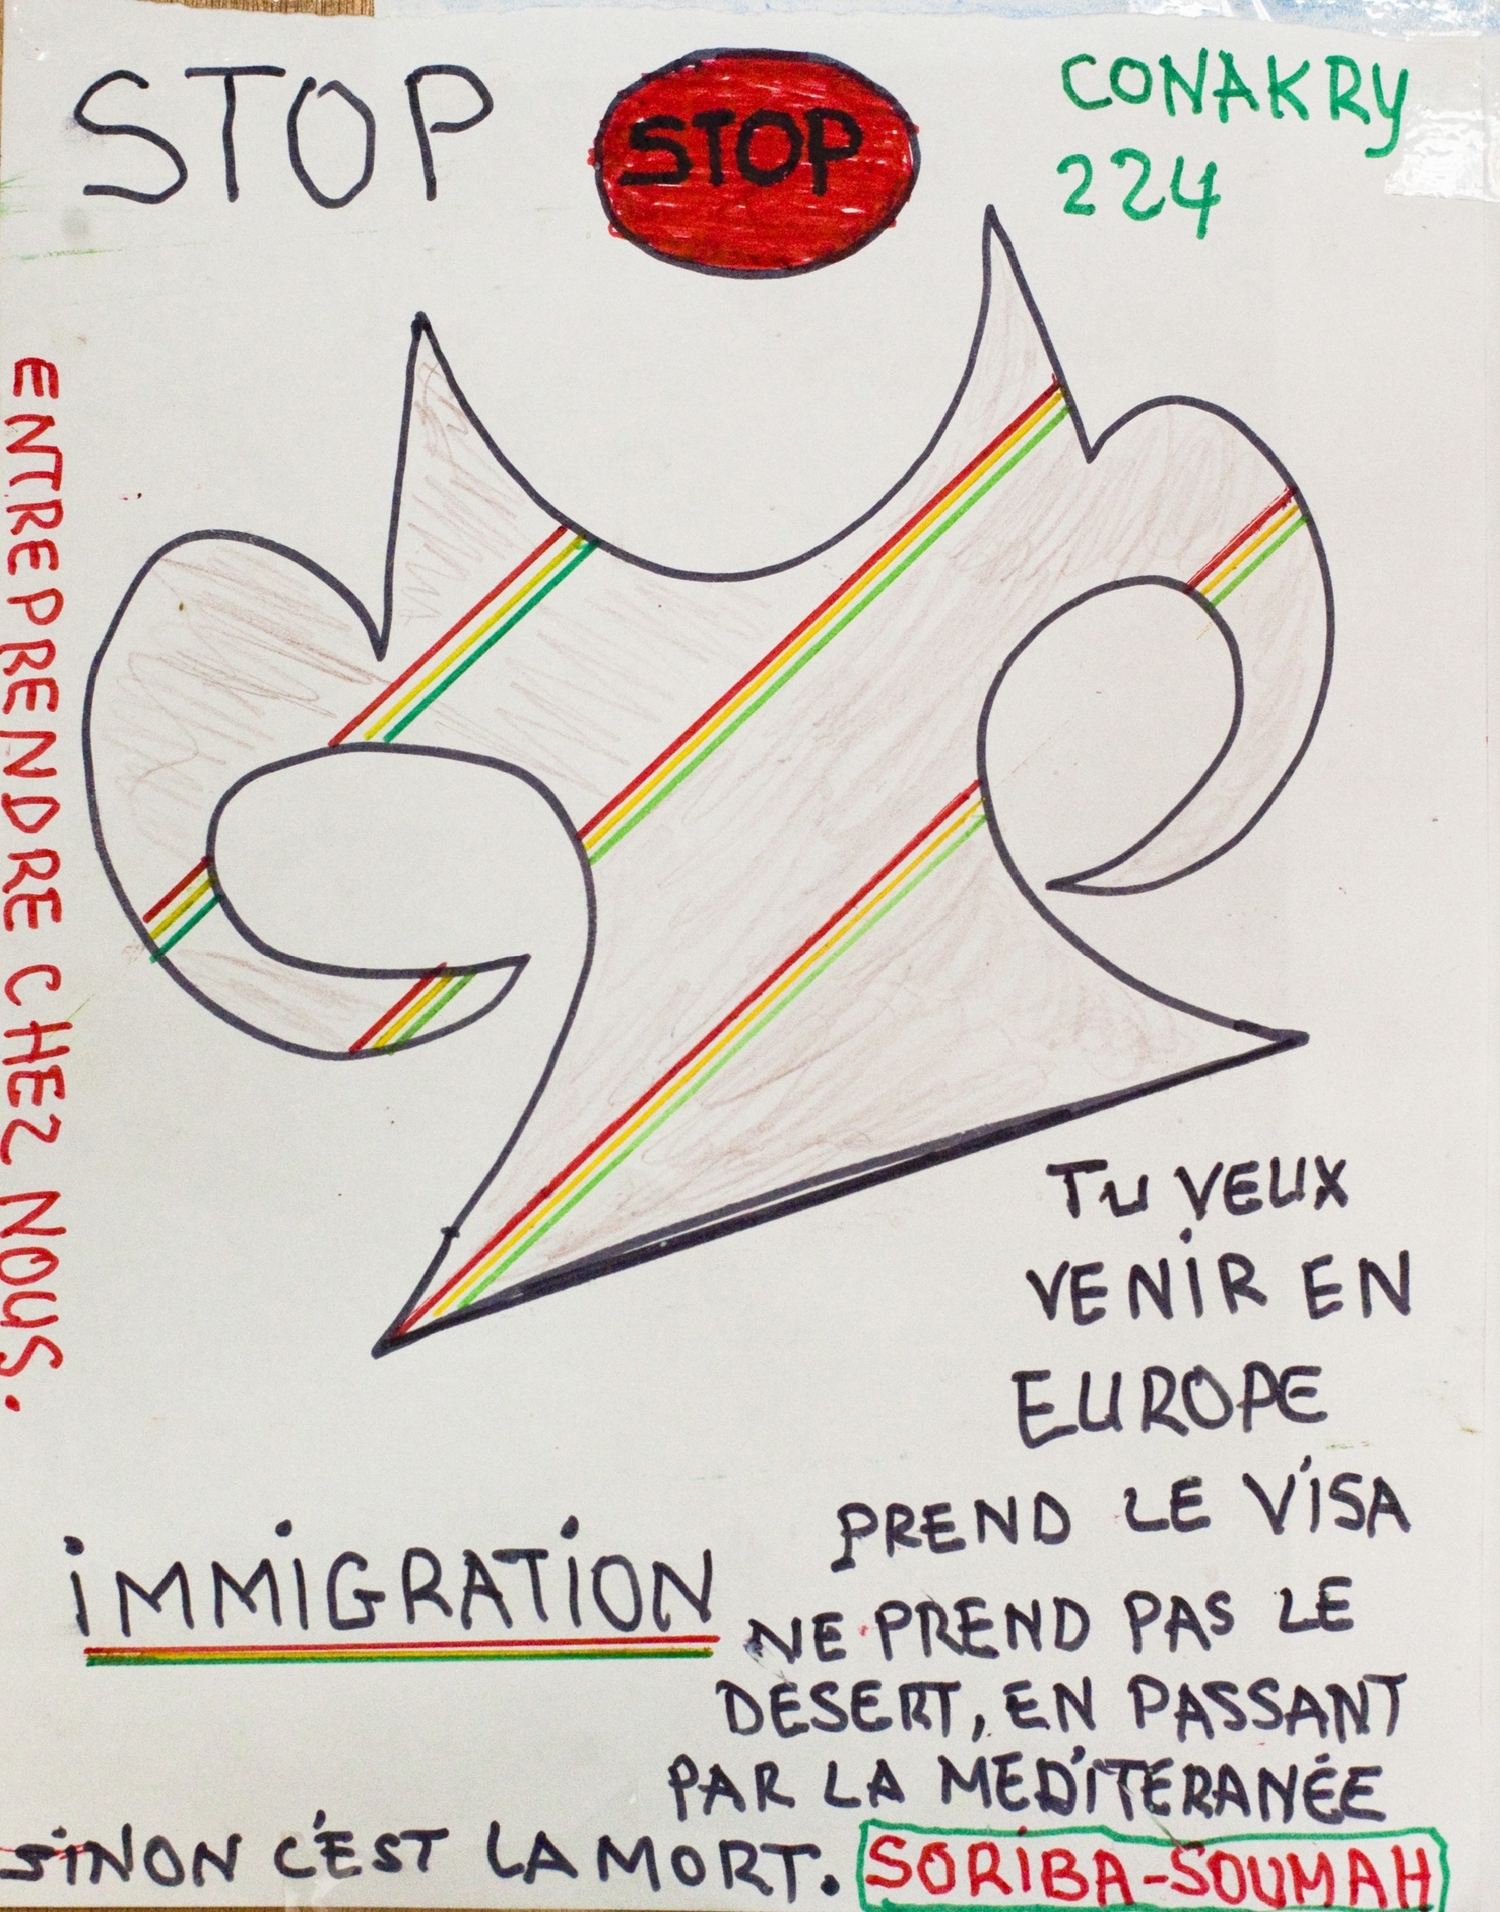 STOP
STOP
CONAKRY
224
ENTREPRENDRE CHEZ NOUS.
TU VEUX
VENIR EN
EUROPE
PREND LE VISA
NE PREND PAS LE
DESERT, EN PASSANT
PAR LA MEDITERANÉE
SINON C'EST LA MORT.
IMMIGRATION
SORIBA-SOUMAH